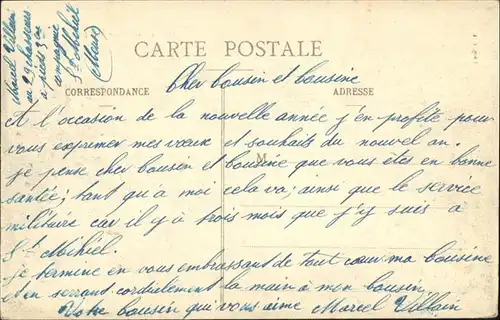 Marcel Villain
au 29 chasseurs
à pieds 3me
compagnie
St Mihiel
(Meuse)
CARTE POSTALE
Cher cousin et cousine
CORRESPONDANCE
ADRESSE
A l'occasion de la nouvelle année j'en profite pour
vous exprimer mes vœux et souhaits du nouvel an.
M
je pense cher cousin et cousine que vous êtes en bonne
santée; tant qu'a moi cela va; ainsi que le service
militaire car il y à trois mois que j'y suis a
St Mihiel.
je termine en vous embrassant de tout cœur ma cousine
et en serrant cordialement la main à mon cousin.
Votre cousin qui vous aime Marcel Villain